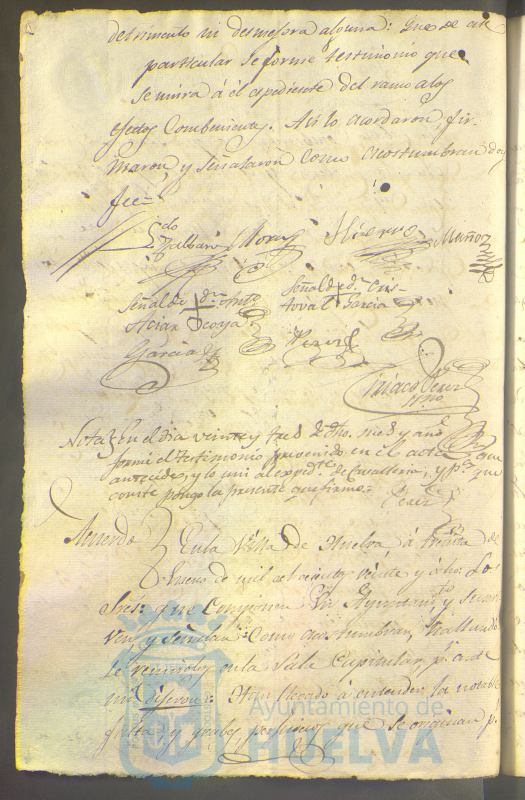 detrimento ni desmejora alguna: Que de este
particular se forme testimonio que
se unira á el espediente del ramo alos
efectos Combenientes. Asi lo acordaron fir-
maron, y señalaron como acostumbran doy
fee =
Ldo
Zalbán Mora Huervo Muñoz
Señal de dn. Anto. Señal de d. Cris-
toval Garcia
Garcia Perez
Ciriaco Perez
Nota En el dia veinte y tres de dho. mes y año
formé el testimonio prevenido en el acta que
antecede, y lo uni al expedte. de Cavalleria, y pa. que
conste pongo la presente que firmo =
Perez
Acuerdo En la Villa de Huelva á treinta de
Enero de mil ochocientos veinte y ocho: Los
Sres. que componen su Ayuntamto. y
y señalan como acostumbran, hallandose
reunidos en la Sala Capitular, p. ante
mi dijeron: Han llegado á entender la notable
falta, y graves perjuicios que se originan p.
Ayuntamiento de
HUELVA